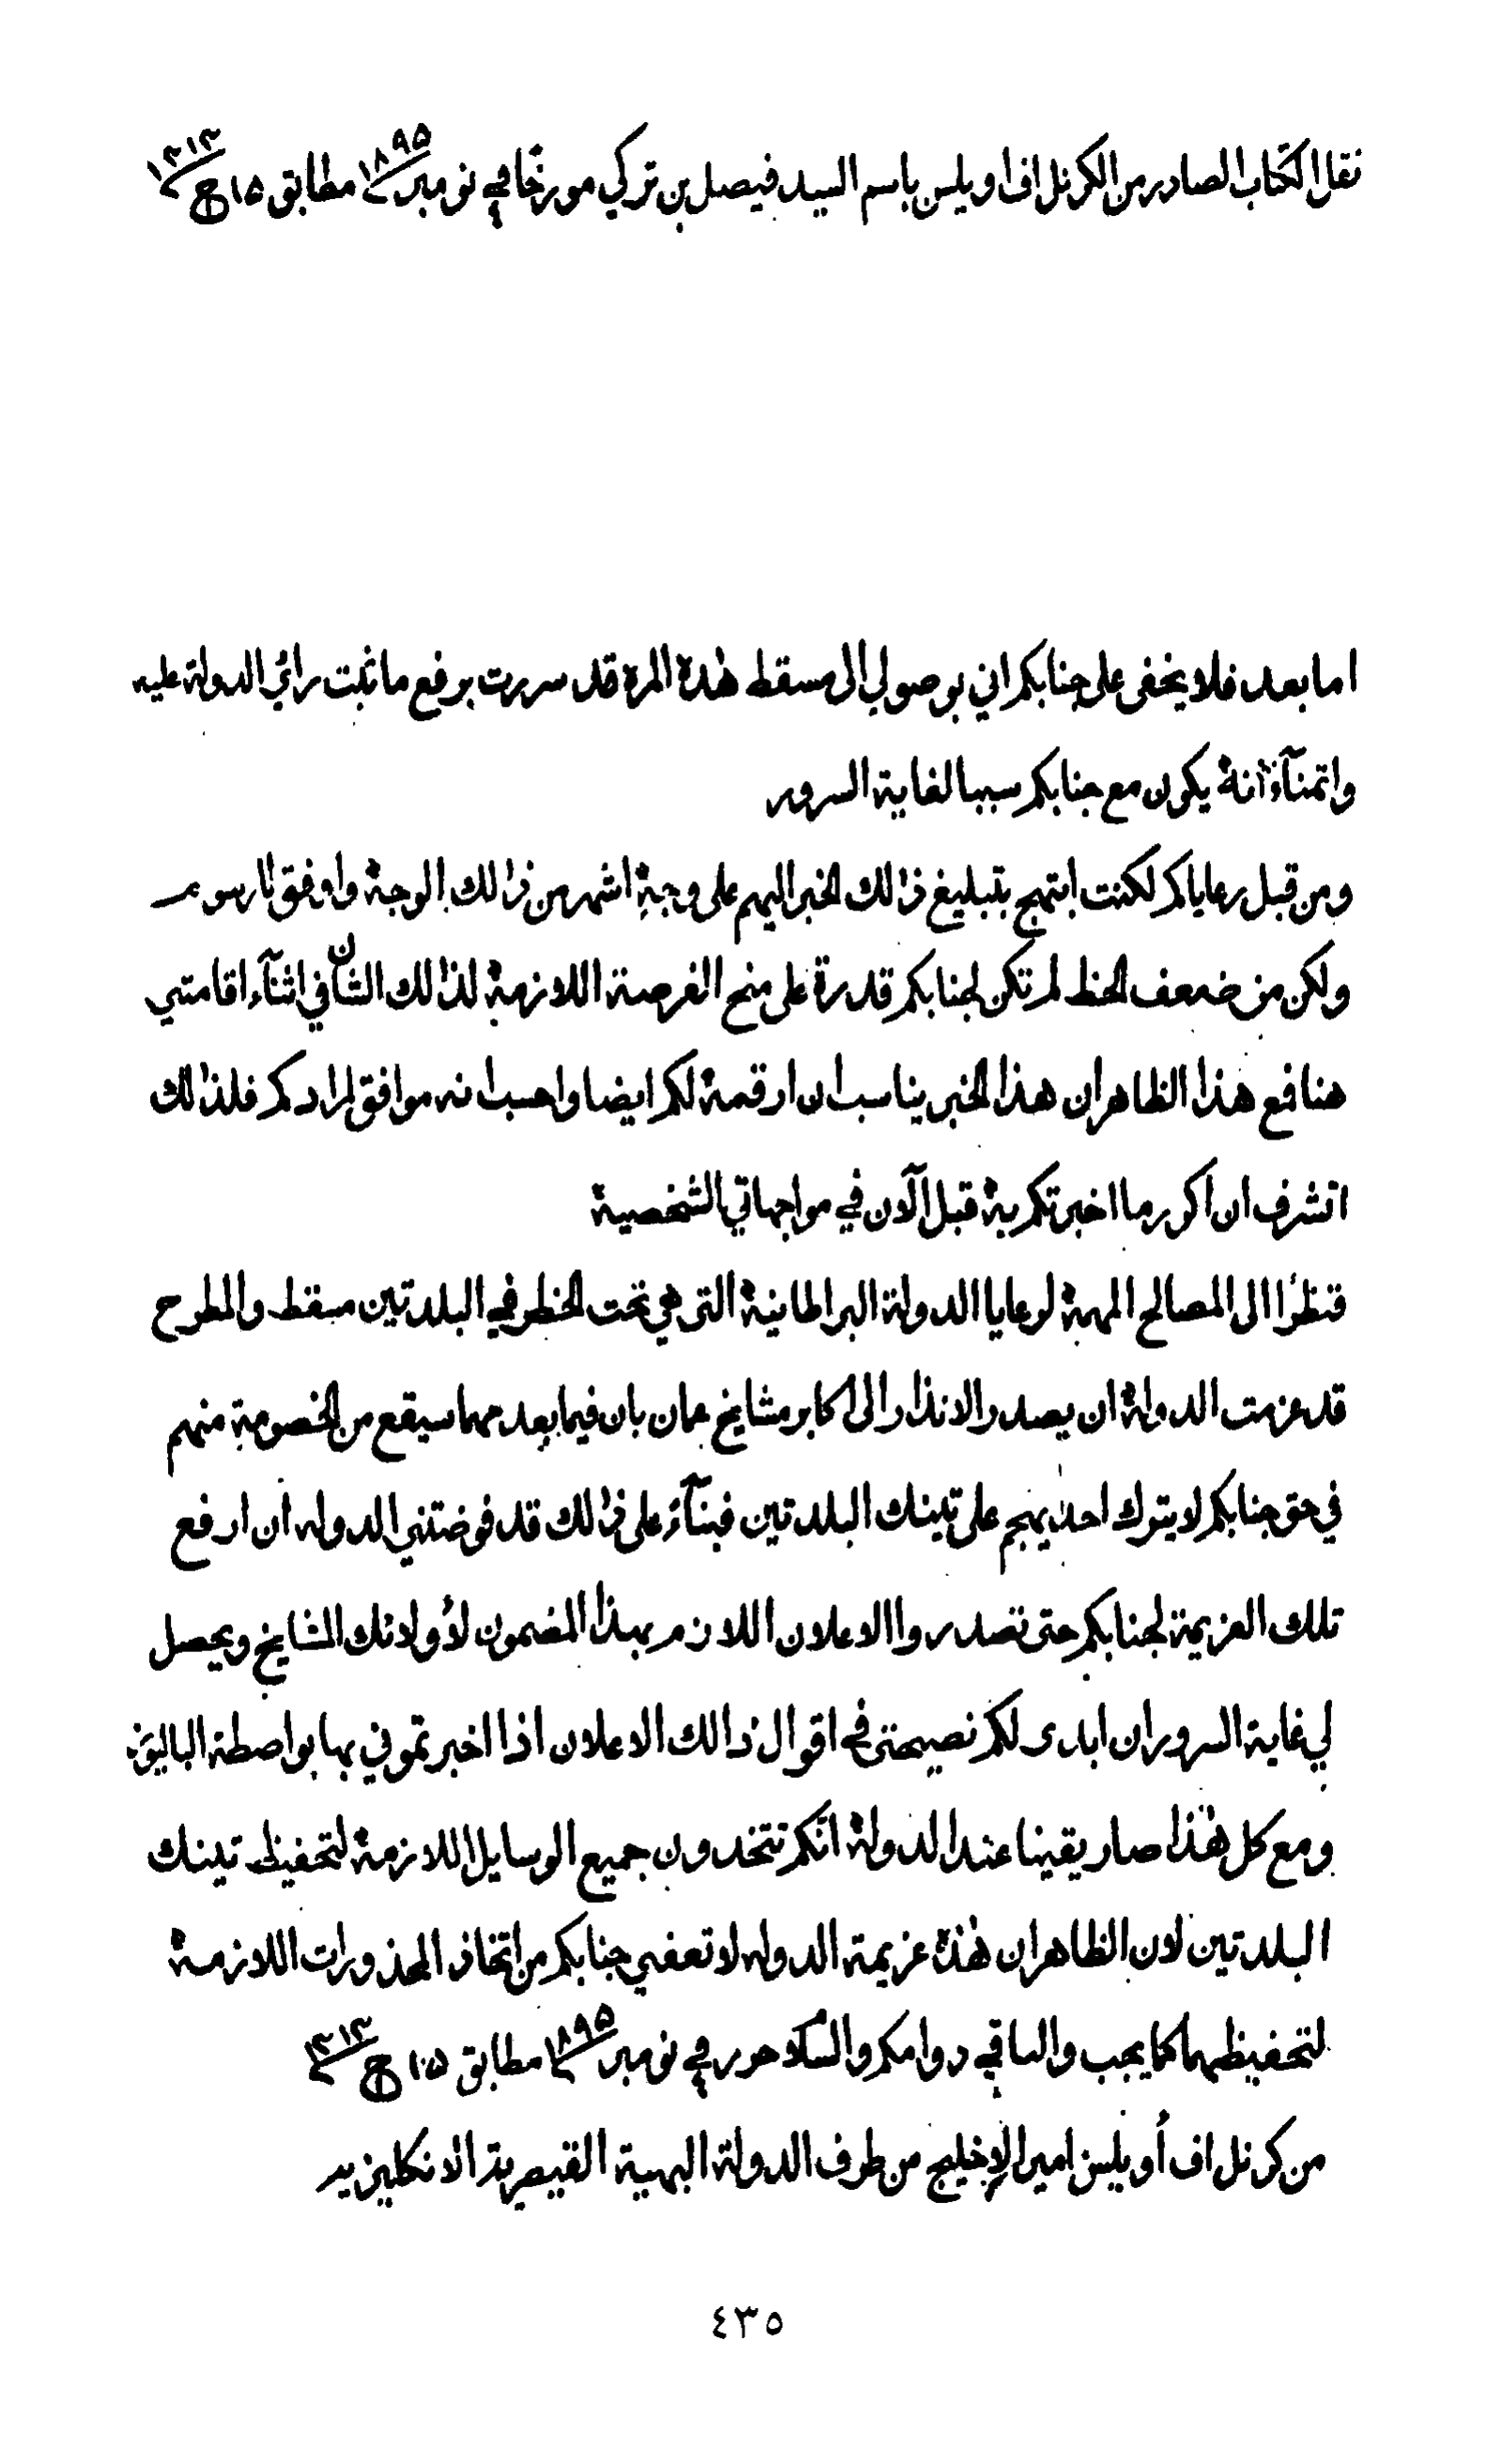 نقل الكتاب الصادر من الكرنل اف اويلسن باسم السيد فيصل بن تركي مورخا في ٤ نومبر ١٨٩٥ مطابق ١٥ ج ١٣١٣
اما بعد فلا يخفى على جنابكم اني بوصولي الى مسقط هذه المرة قد سررت برفع ما ثبت رائي الدولة عليه
واتمنآء انهُ يكون مع جنابكم سببا لغاية السرور
ومن قبل رعاياكم لكنت ابتهج بتبليغ ذالك الخبر اليهم على وجهٍ اشهر من ذالك الوجهُ واوفق لارسوم
ولكن من ضعف الحظ لم تكن لجنابكم قدرة على منح الفرصة اللازمة لذالك الشان في اثنآء اقامتي
هنا فمع هذا الظاهر ان هذا الخبر يناسب ان ارقمهُ لكم ايضا واحسب انه موافق لمرادكم فلذالك
اتشرف ان اكرر ما اخبرتكم بهُ قبل الآن في مواجهاتي الشخصية
فنظرًا الى المصالح المهمة لرعايا الدولة البراطانية التى هي تحت الخطر في البلدتين مسقط والمطرح
قد عزمت الدولة ان يصدر الانذار الى اكابر مشايخ عمان بان فيما بعد مهما سيقع من الخصومة منهم
في حق جنابكم لا يترك احد يهجم على تينك البلدتين فبنآءً على ذالك قد فوضتني الدوله ان ارفع
تلك العزيمة لجنابكم حتى تصدروا الاعلان اللازم بهذا المضمون لأولائك المشايخ ويحصل
لي غاية السرور ان ابدى لكم نصيحتى في اقوال ذالك الاعلان اذا اخبرتموني بها بواصطة الباليوز
ومع كل هذا صار يقينا عند الدولة انكم تتخدون جميع الوسايل اللازمة لتحفيظ تينك
البلدتين لان الظاهر ان هذه عزيمة الدوله لا تعفي جنابكم من اتخاذ المحذورات اللازمة
لتحفيظهما كما يجب والباقي دوامكم والسلام حرر في ٤ نومبر ١٨٩٥ مطابق ١٥ ج ١٣١٣
من كرنل اف أويلسن امير الاخليج من طرف الدولة البهية القيصرية الانكليزيه
٤٣٥